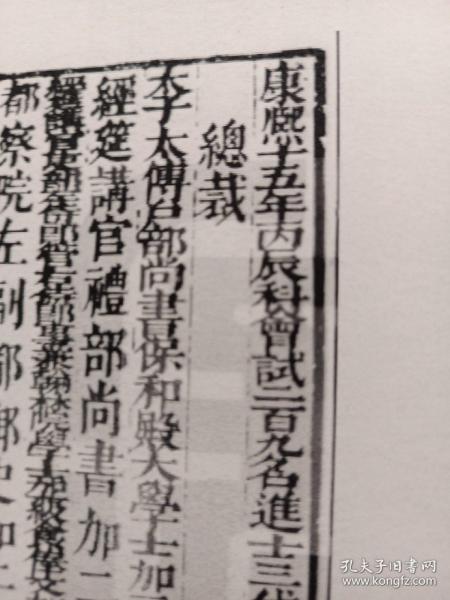 康熙十五年丙辰科會試二百九名進士三代
總裁
太子太傅戶部尚書保和殿大學士加
經筵講官禮部尚書加一
經筵講官吏部左侍郎管右侍郎事兼翰林院學士加級
都察院左副都御史加
孔夫子旧书网
www.kongfz.com